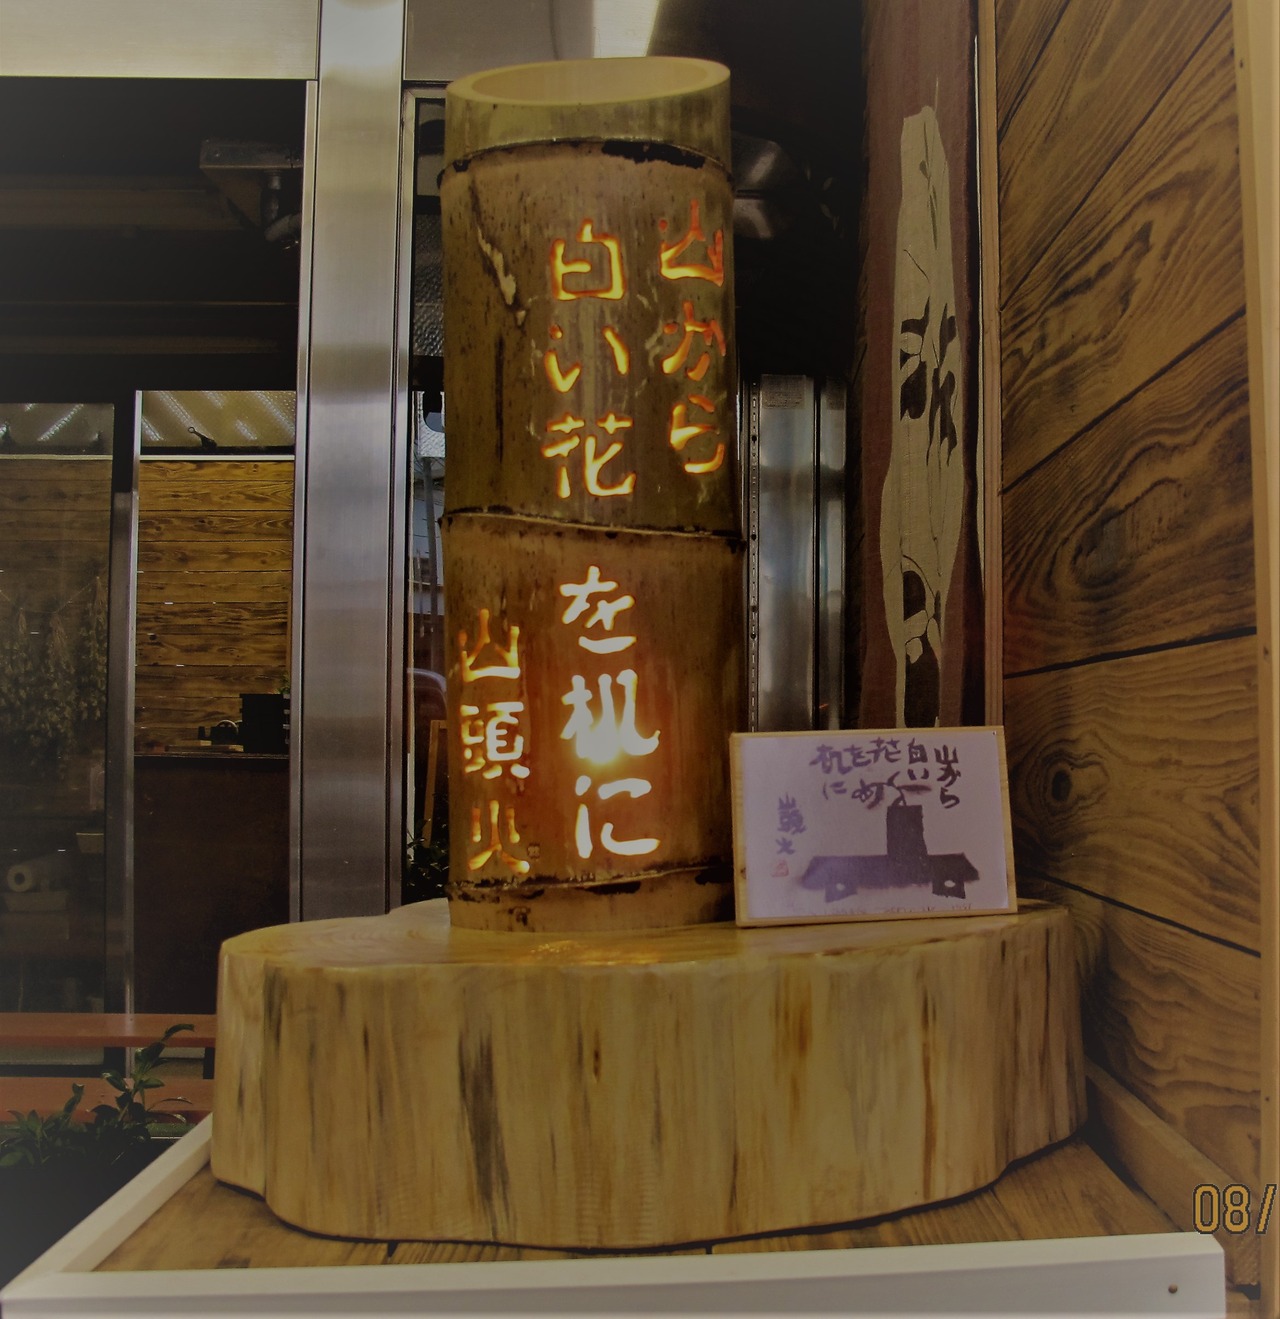 山から
白い花を机に
山頭火
山から
白い
花を
机に
山頭火
08/